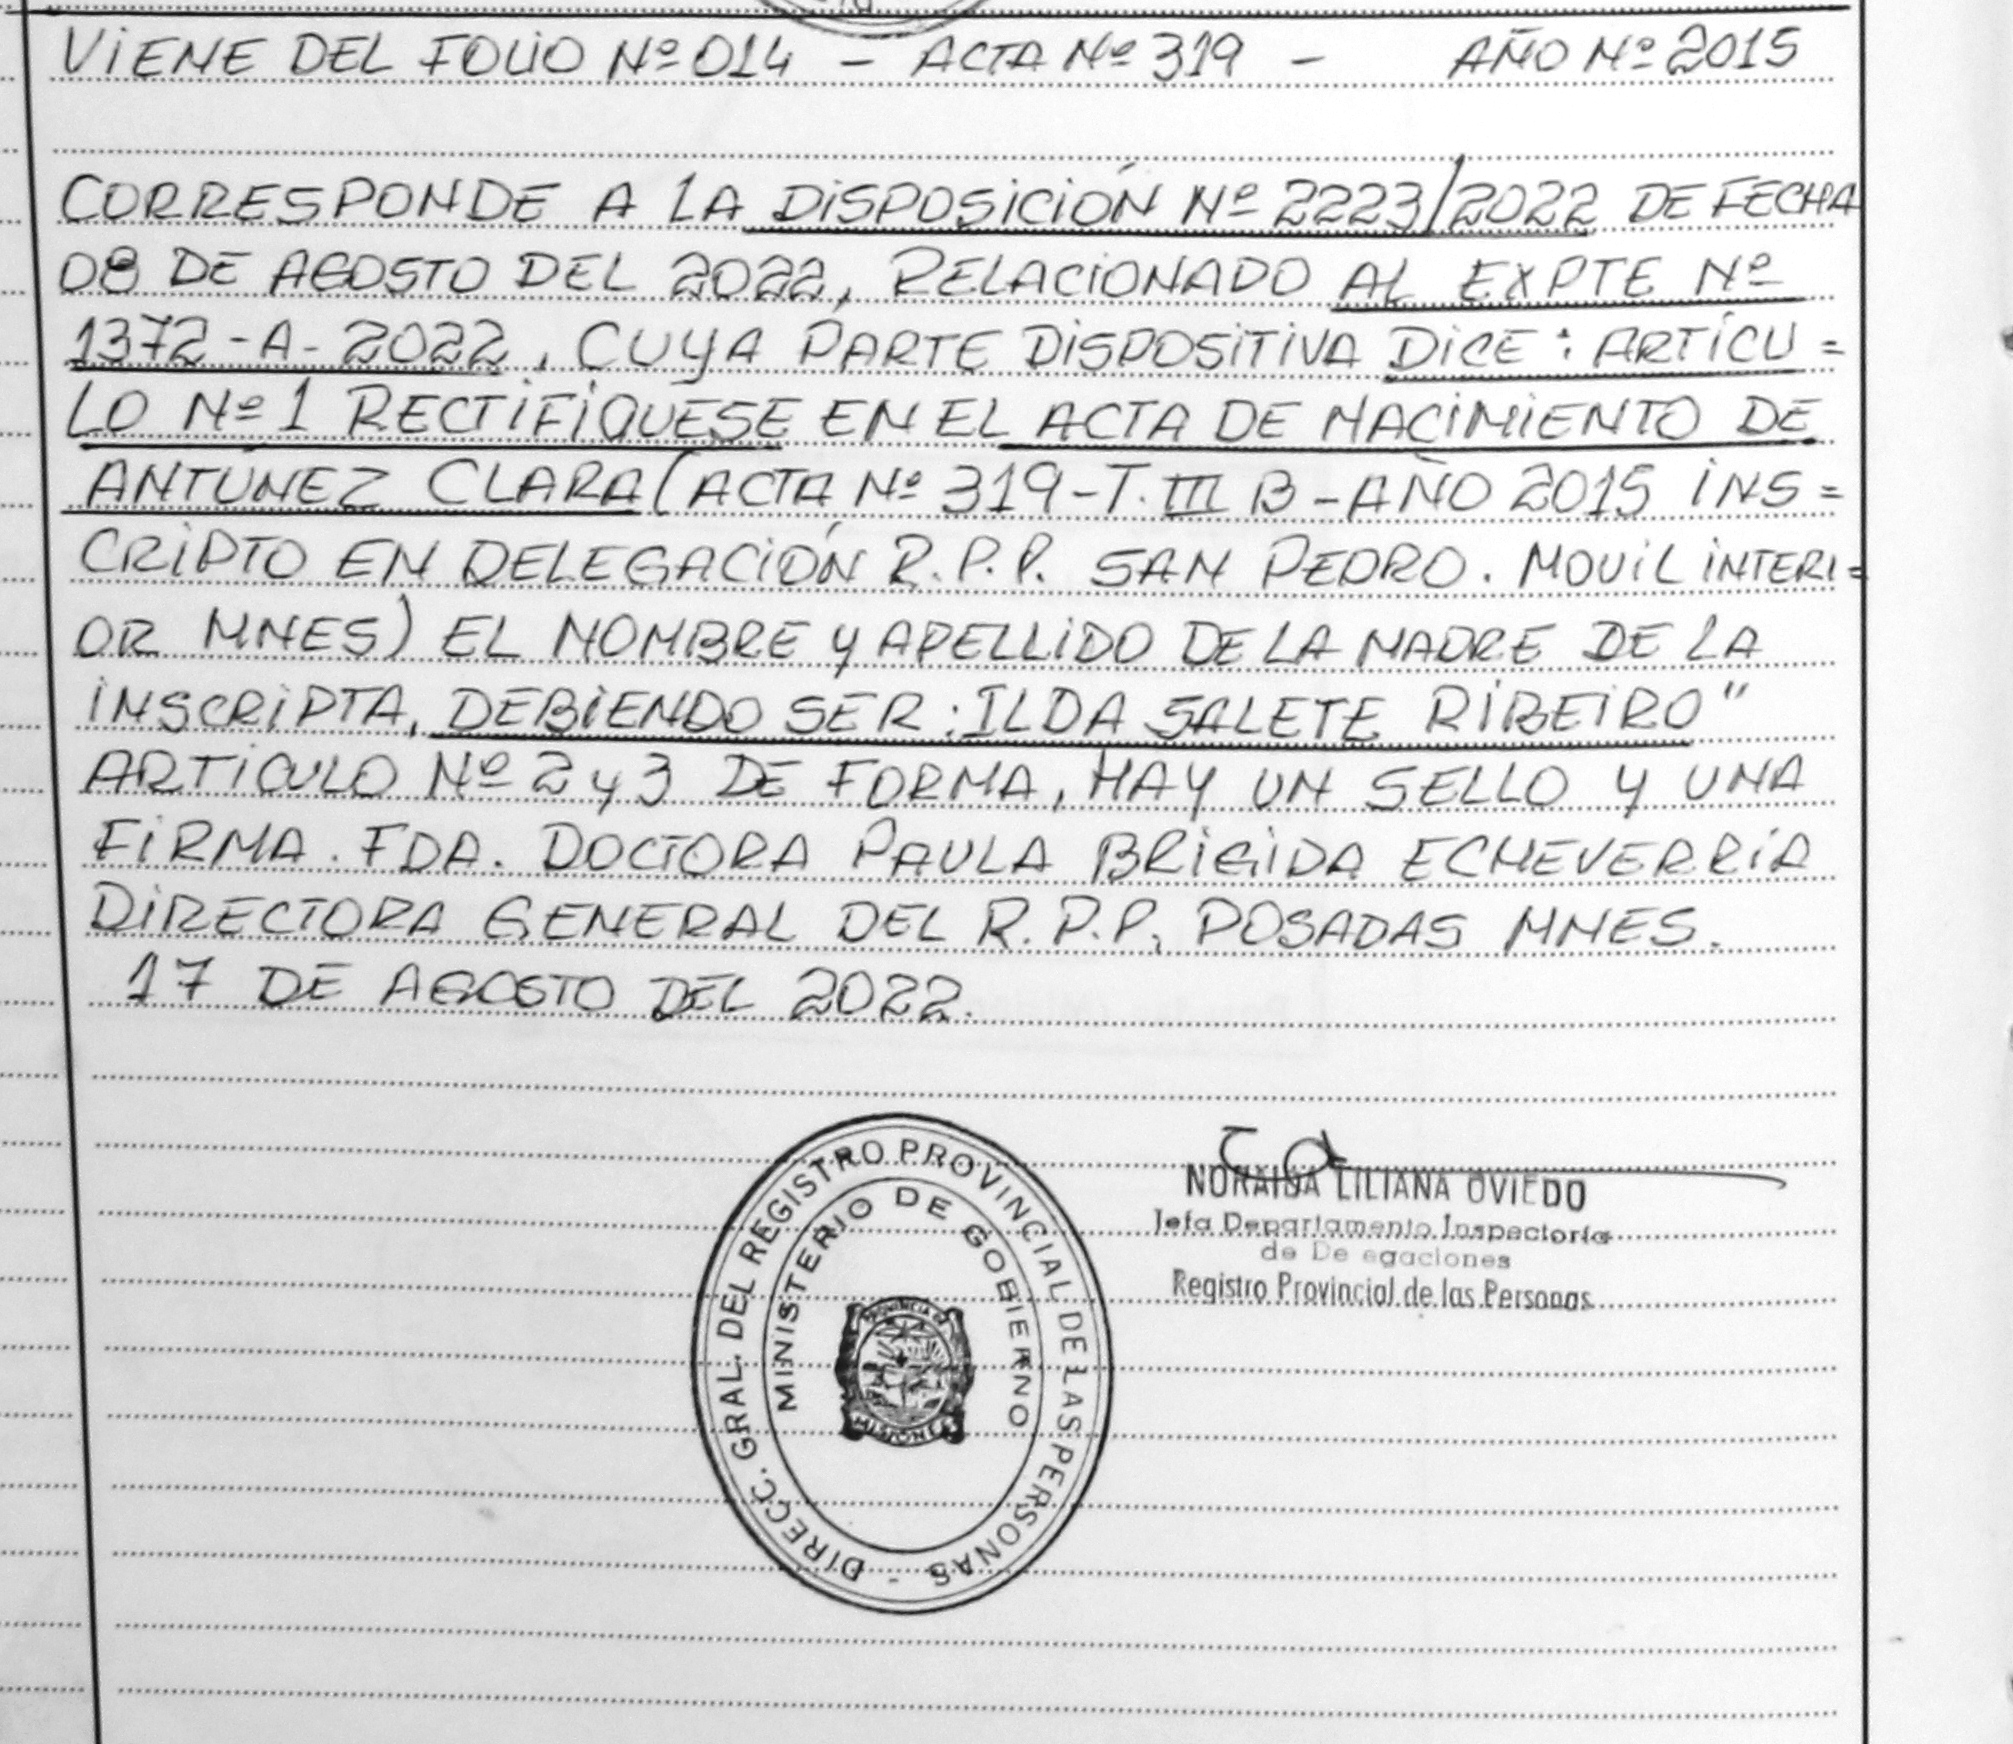 VIENE DEL FOLIO Nº 014 - ACTA Nº 319 - AÑO Nº 2015
CORRESPONDE A LA DISPOSICIÓN Nº 2223/2022 DE FECHA
08 DE AGOSTO DEL 2022, RELACIONADO AL EXPTE Nº
1372-A-2022, CUYA PARTE DISPOSITIVA DICE: ARTÍCU=
LO Nº 1 RECTIFIQUESE EN EL ACTA DE NACIMIENTO DE
ANTÚNEZ CLARA (ACTA Nº 319-T. III B-AÑO 2015 INS=
CRIPTO EN DELEGACIÓN R.P.P. SAN PEDRO. MOVIL INTERI=
OR MNES) EL NOMBRE Y APELLIDO DE LA MADRE DE LA
INSCRIPTA, DEBIENDO SER: ILDA SALETE RIBEIRO"
ARTICULO Nº 2 y 3 DE FORMA, HAY UN SELLO Y UNA
FIRMA. FDA. DOCTORA PAULA BRIGIDA ECHEVERRÍA
DIRECTORA GENERAL DEL R.P.P. POSADAS MNES.
17 DE AGOSTO DEL 2022.
DIRECC. GRAL. DEL REGISTRO PROVINCIAL DE LAS PERSONAS -
MINISTERIO DE GOBIERNO
PROVINCIA DE
MISIONES
NORAIDA LILIANA OVIEDO
Jefa Departamento Inspectoría
de De egaciones
Registro Provincial de las Personas